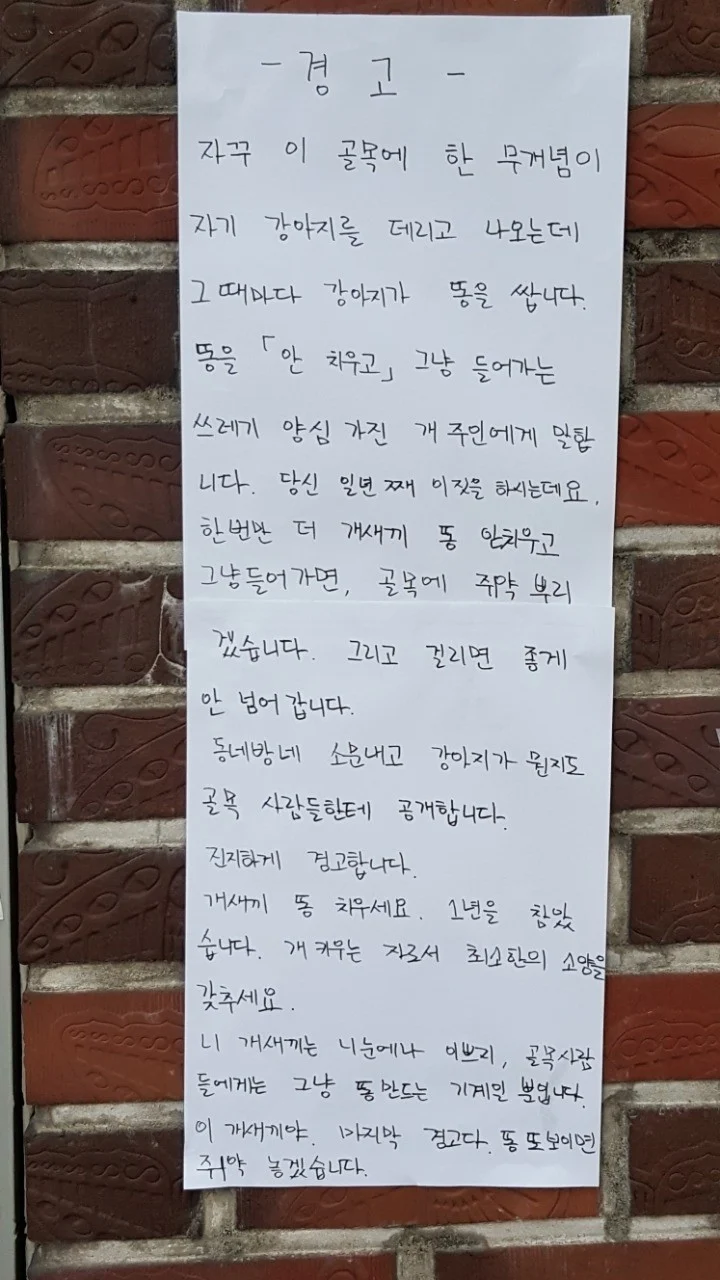 - 경 고 -
자꾸 이 골목에 한 무개념이
자기 강아지를 데리고 나오는데
그때마다 강아지가 똥을 쌉니다.
똥을 「안 치우고」 그냥 들어가는
쓰레기 양심 가진 개 주인에게 말합
니다. 당신 일년 째 이짓을 하시는데요,
한번만 더 개새끼 똥 안치우고
그냥들어가면, 골목에 쥐약 뿌리
겠습니다. 그리고 걸리면 좋게
안 넘어 갑니다.
동네방네 소문내고 강아지가 뭔지도
골목 사람들한테 공개합니다.
진지하게 경고합니다.
개새끼 똥 치우세요. 1년을 참았
습니다. 개 키우는 자로서 최소한의 소양을
갖추세요.
니 개새끼는 니눈에나 이쁘리, 골목사람
들에게는 그냥 똥만드는 기계일 뿐입니다.
이 개새끼야. 마지막 경고다. 똥 또보이면
쥐약 놓겠습니다.